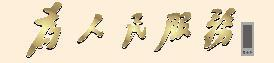 为人民服務